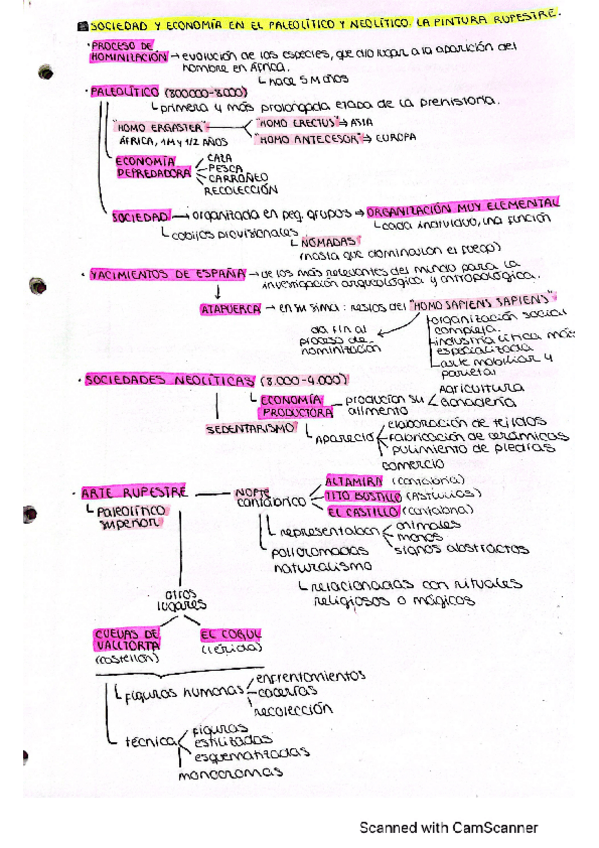 SOCIEDAD Y ECONOMÍA EN EL PALEOLÍTICO Y NEOLÍTICO. LA PINTURA RUPESTRE.
· PROCESO DE
HOMINILACIÓN → evolución de las especies, que dio lugar a la aparición del
hombre en África.
↳ hace 5 M años
· PALEOLÍTICO (800000-8000)
↳ primera y más prolongada etapa de la prehistoria.
"HOMO ERGASTER" "HOMO ERECTUS" → ASIA
ÁFRICA, 1M y 1/2 AÑOS "HOMO ANTECESOR" → EUROPA
ECONOMÍA CAZA
DEPREDADORA PESCA
CARROÑEO
RECOLECCIÓN
SOCIEDAD → organizada en peq. grupos → ORGANIZACIÓN MUY ELEMENTAL
↳ cada individuo, una función
↳ cobijos provisionales ↳ NÓMADAS
(hasta que dominaron el fuego)
· YACIMIENTOS DE ESPAÑA → de los más relevantes del mundo para la
investigación arqueológica y antropológica.
ATAPUERCA → en su sima: restos del "HOMO SAPIENS SAPIENS"
da fin al organización social
proceso de compleja.
hominización industria lítica más
especializada
arte mobiliar y
parietal
· SOCIEDADES NEOLÍTICAS (8.000-4.000)
↳ ECONOMÍA producían su agricultura
PRODUCTORA alimento ganadería
SEDENTARISMO
↳ Apareció elaboración de tejidos
fabricación de cerámicas
pulimiento de piedras
comercio
· ARTE RUPESTRE NORTE ALTAMIRA (cantabria)
↳ paleolítico cantábrico TITO BUSTILLO (Asturias)
superior EL CASTILLO (cantabria)
↳ representaban animales
manos
signos abstractos
↳ policromadas
naturalismo
↳ relacionadas con rituales
religiosos o mágicos
otros
lugares
CUEVAS DE EL COGUL
VALLTORTA (lérida)
(castellón)
↳ figuras humanas enfrentamientos
cacerías
recolección
↳ técnica figuras
estilizadas
esquematizadas
monocromas
Scanned with CamScanner